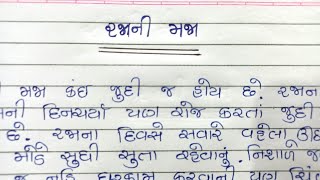 રજાની મજા
મજા કંઇ જુદી જ હોય છે. રજાના
ની દિનચર્યા પણ રોજ કરતાં જુદી
છે. રજાના દિવસે સવારે વહેલા ઊઠ
મોડે સુધી સુતા રહેવાનું. નિશાળે જ
કરવાની પણ